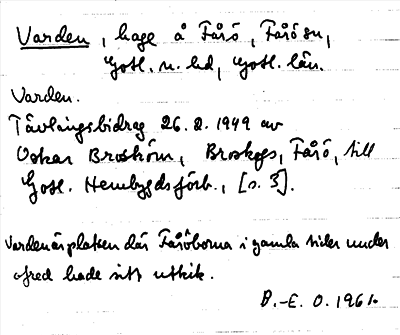 Varden, hage å Fårö, Fårö sn,
Gotl. n. hd, Gotl. län.
Varden.
Tävlingsbidrag 26.2.1949 av
Oskar Broström, Broskogs, Fårö, till
Gotl. Hembygdsförb., [s. 3].
Varden är platsen där Fåröborna i gamla tider under
ofred hade sitt utkik.
B.-E. O. 1961.